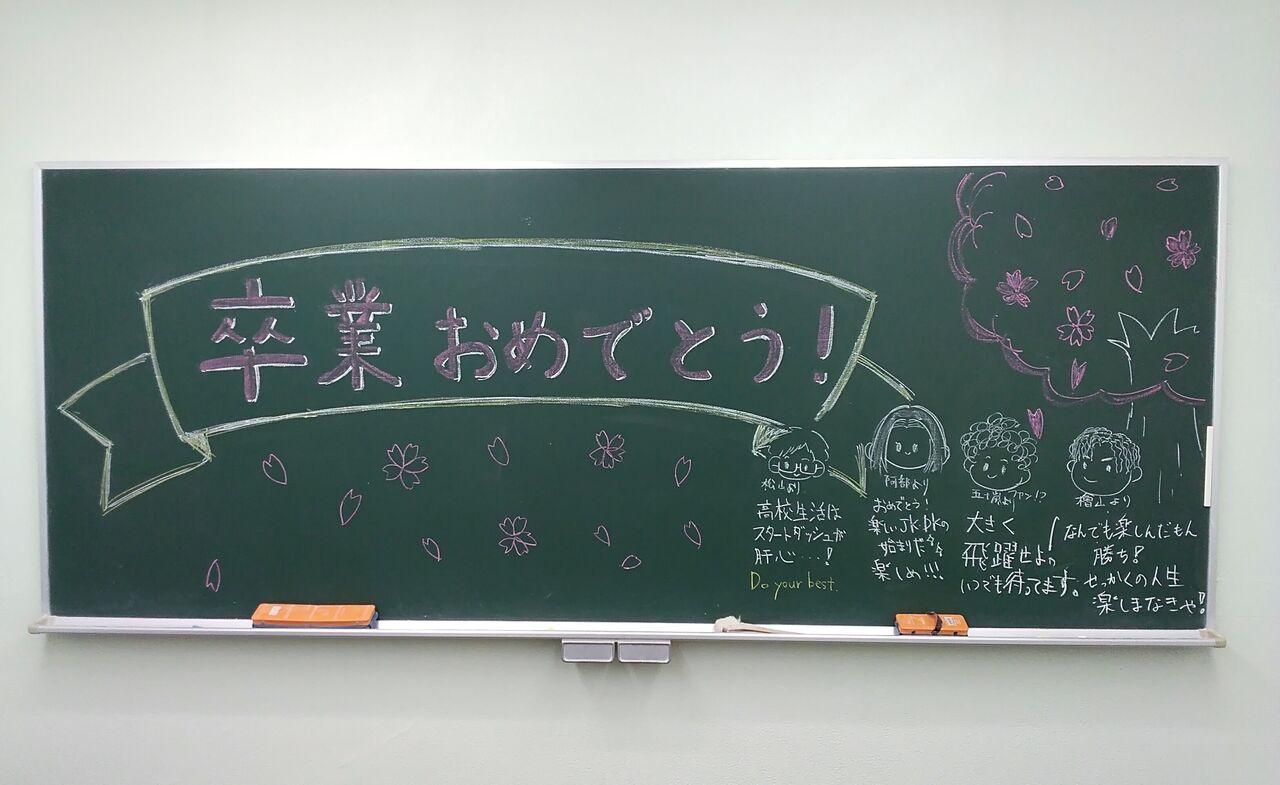 卒業おめでとう!
松山より
高校生活は
スタートダッシュが
肝心…!
Do your best.
阿部より
おめでとう!
楽しいJK・DKの
始まりだ
楽しめ!!!
五十嵐より
大きく
飛躍せよ
いつでも待ってます。
檜山より
なんでも楽しんだもん
勝ち!
せっかくの人生
楽しまなきゃ!